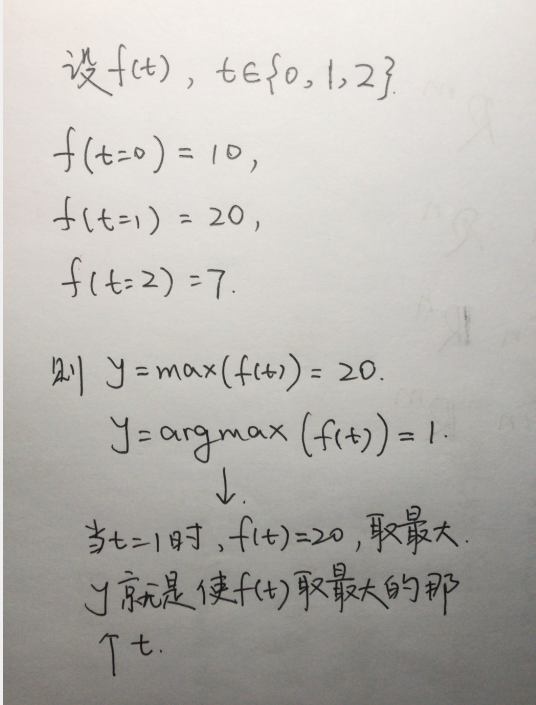 设f(t), t∈{0,1,2}.
f(t=0) = 10,
f(t=1) = 20,
f(t=2) =7.
则 y=max(f(t)) = 20.
y=argmax (f(t)) = 1.
↓.
当t=1时,f(t)=20,取最大.
y就是使f(t)取最大的那
个t.